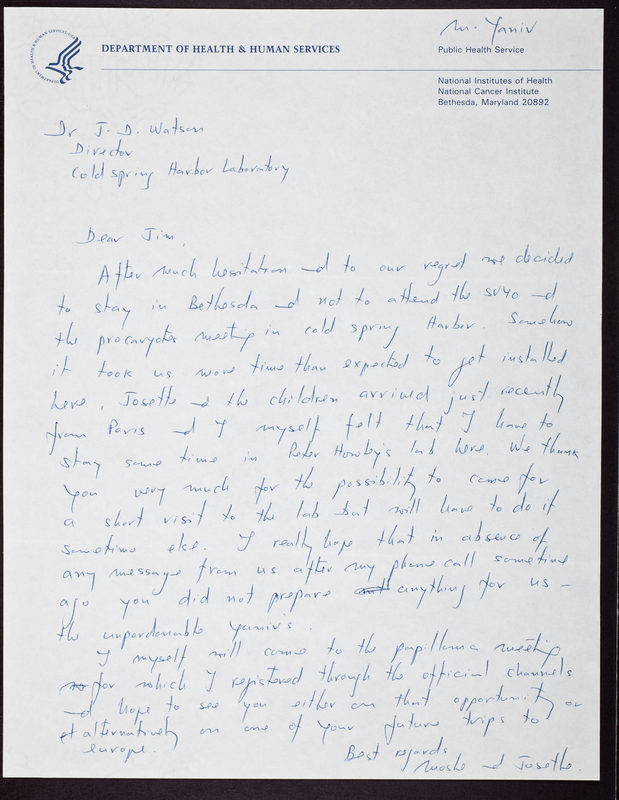 M. Yaniv
DEPARTMENT OF HEALTH & HUMAN SERVICES
Public Health Service
National Institutes of Health
National Cancer Institute
Bethesda, Maryland 20892
Dr J. D. Watson
Director
Cold spring Harbor Laboratory
Dear Jim,
After much hesitation and to our regret we decided
to stay in Bethesda and not to attend the SV40 and
the procaryotes meeting in cold spring Harbor. Somehow
it took us more time than expected to get installed
here, Josette and the children arrived just recently
from Paris and I myself felt that I have to
stay some time in Peter Howley's lab here. We thank
you very much for the possibility to come for
a short visit to the lab but will have to do it
sometime else. I really hope that in absence of
any message from us after my phone call sometime
ago you did not prepare anything for us -
the unpardonable Yaniv's.
I myself will come to the papilloma meeting
for which I registered through the official channels
and hope to see you either on that opportunity or
alternatively on one of your future trips to
europe.
Best regards
Moshe and Josette.